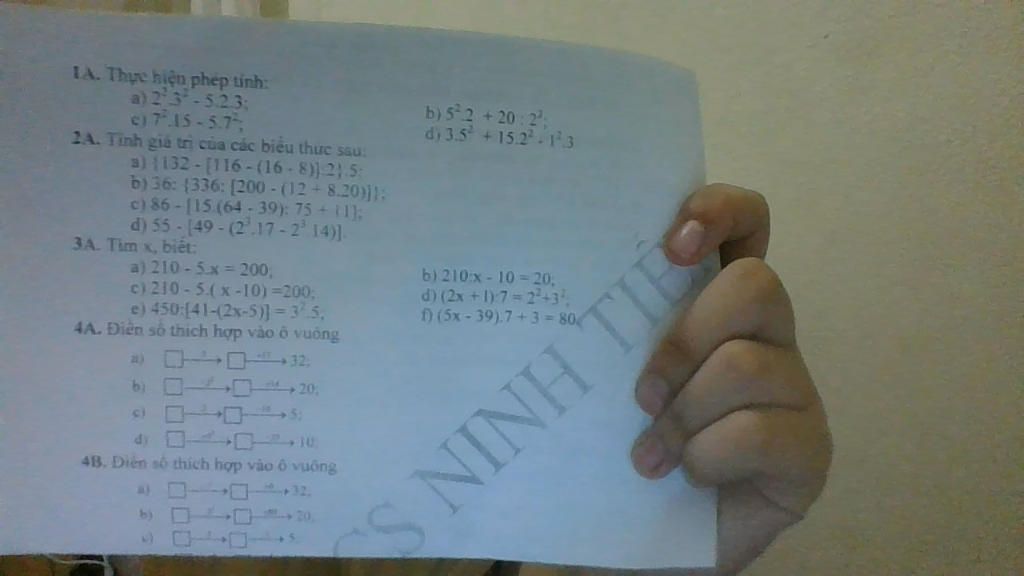 1A. Thực hiện phép tính:
a) 2².3² - 5.2.3;
b) 5².2 + 20 : 2²;
c) 7².15 - 5.7²;
d) 3.5² + 15.2² - 1².3
2A. Tính giá trị của các biểu thức sau:
a) {132 - [116 - (16 - 8)]:2}.5;
b) 36: {336: [200 - (12 + 8.20)]};
c) 86 - [15.(64 - 39): 75 + 11];
d) 55 - [49 - (2³.17 - 2³ 14)].
3A. Tìm x, biết:
a) 210 - 5.x = 200;
b) 210:x - 10 = 20;
c) 210 - 5.( x -10) =200;
d) (2x + 1):7 = 2²+3²;
e) 450:[41-(2x-5)] = 3².5;
f) (5x - 39).7 + 3 = 80
4A. Điền số thích hợp vào ô vuông
a) 32;
b) 20;
c) 5;
d) 10;
4B. Điền số thích hợp vào ô vuông
a) 32;
b) 20;
c) 5
CS NINH